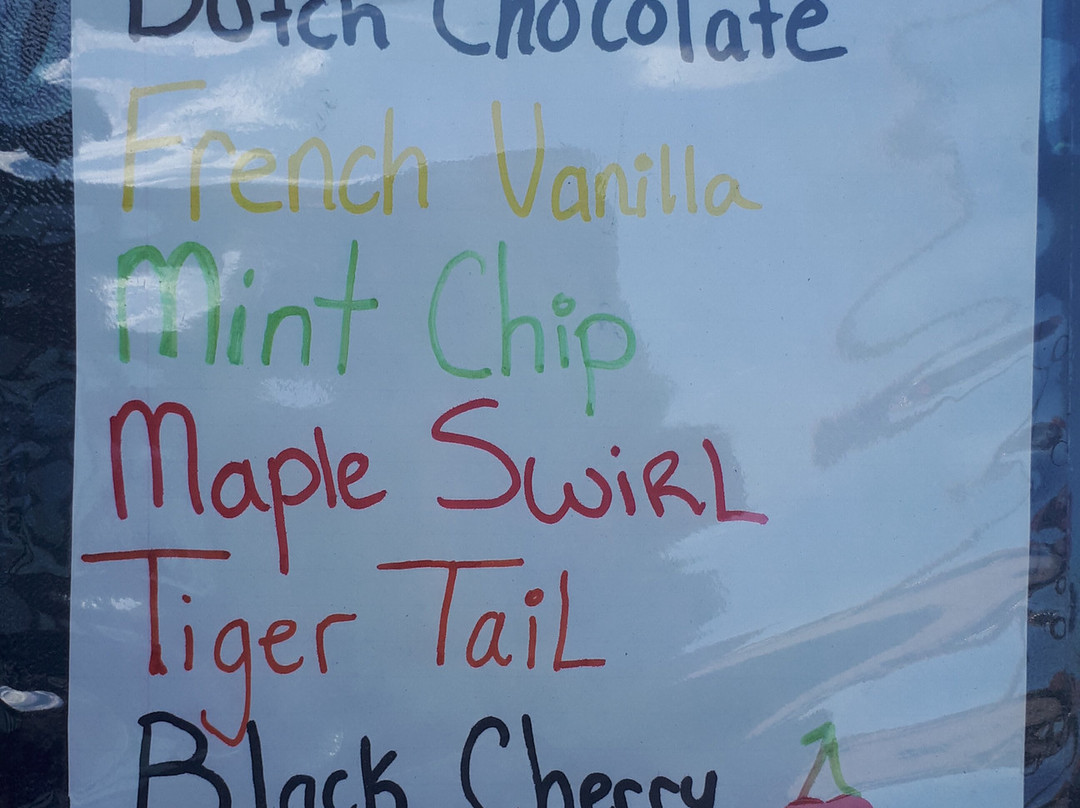 Dutch Chocolate
French Vanilla
Mint Chip
Maple SwiRL
Tiger TaiL
Black Cherry